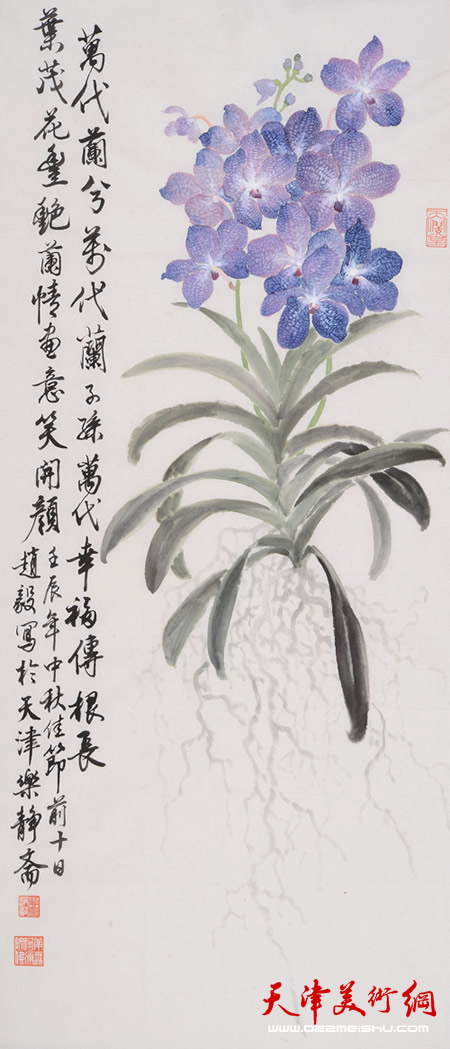 萬代蘭兮萬代蘭子孫萬代幸福傳根長
葉茂花豐艷蘭情畫意笑開顏
壬辰年中秋佳節前十日
趙毅寫於天津樂靜齋
天津美術網
www.022meishu.com